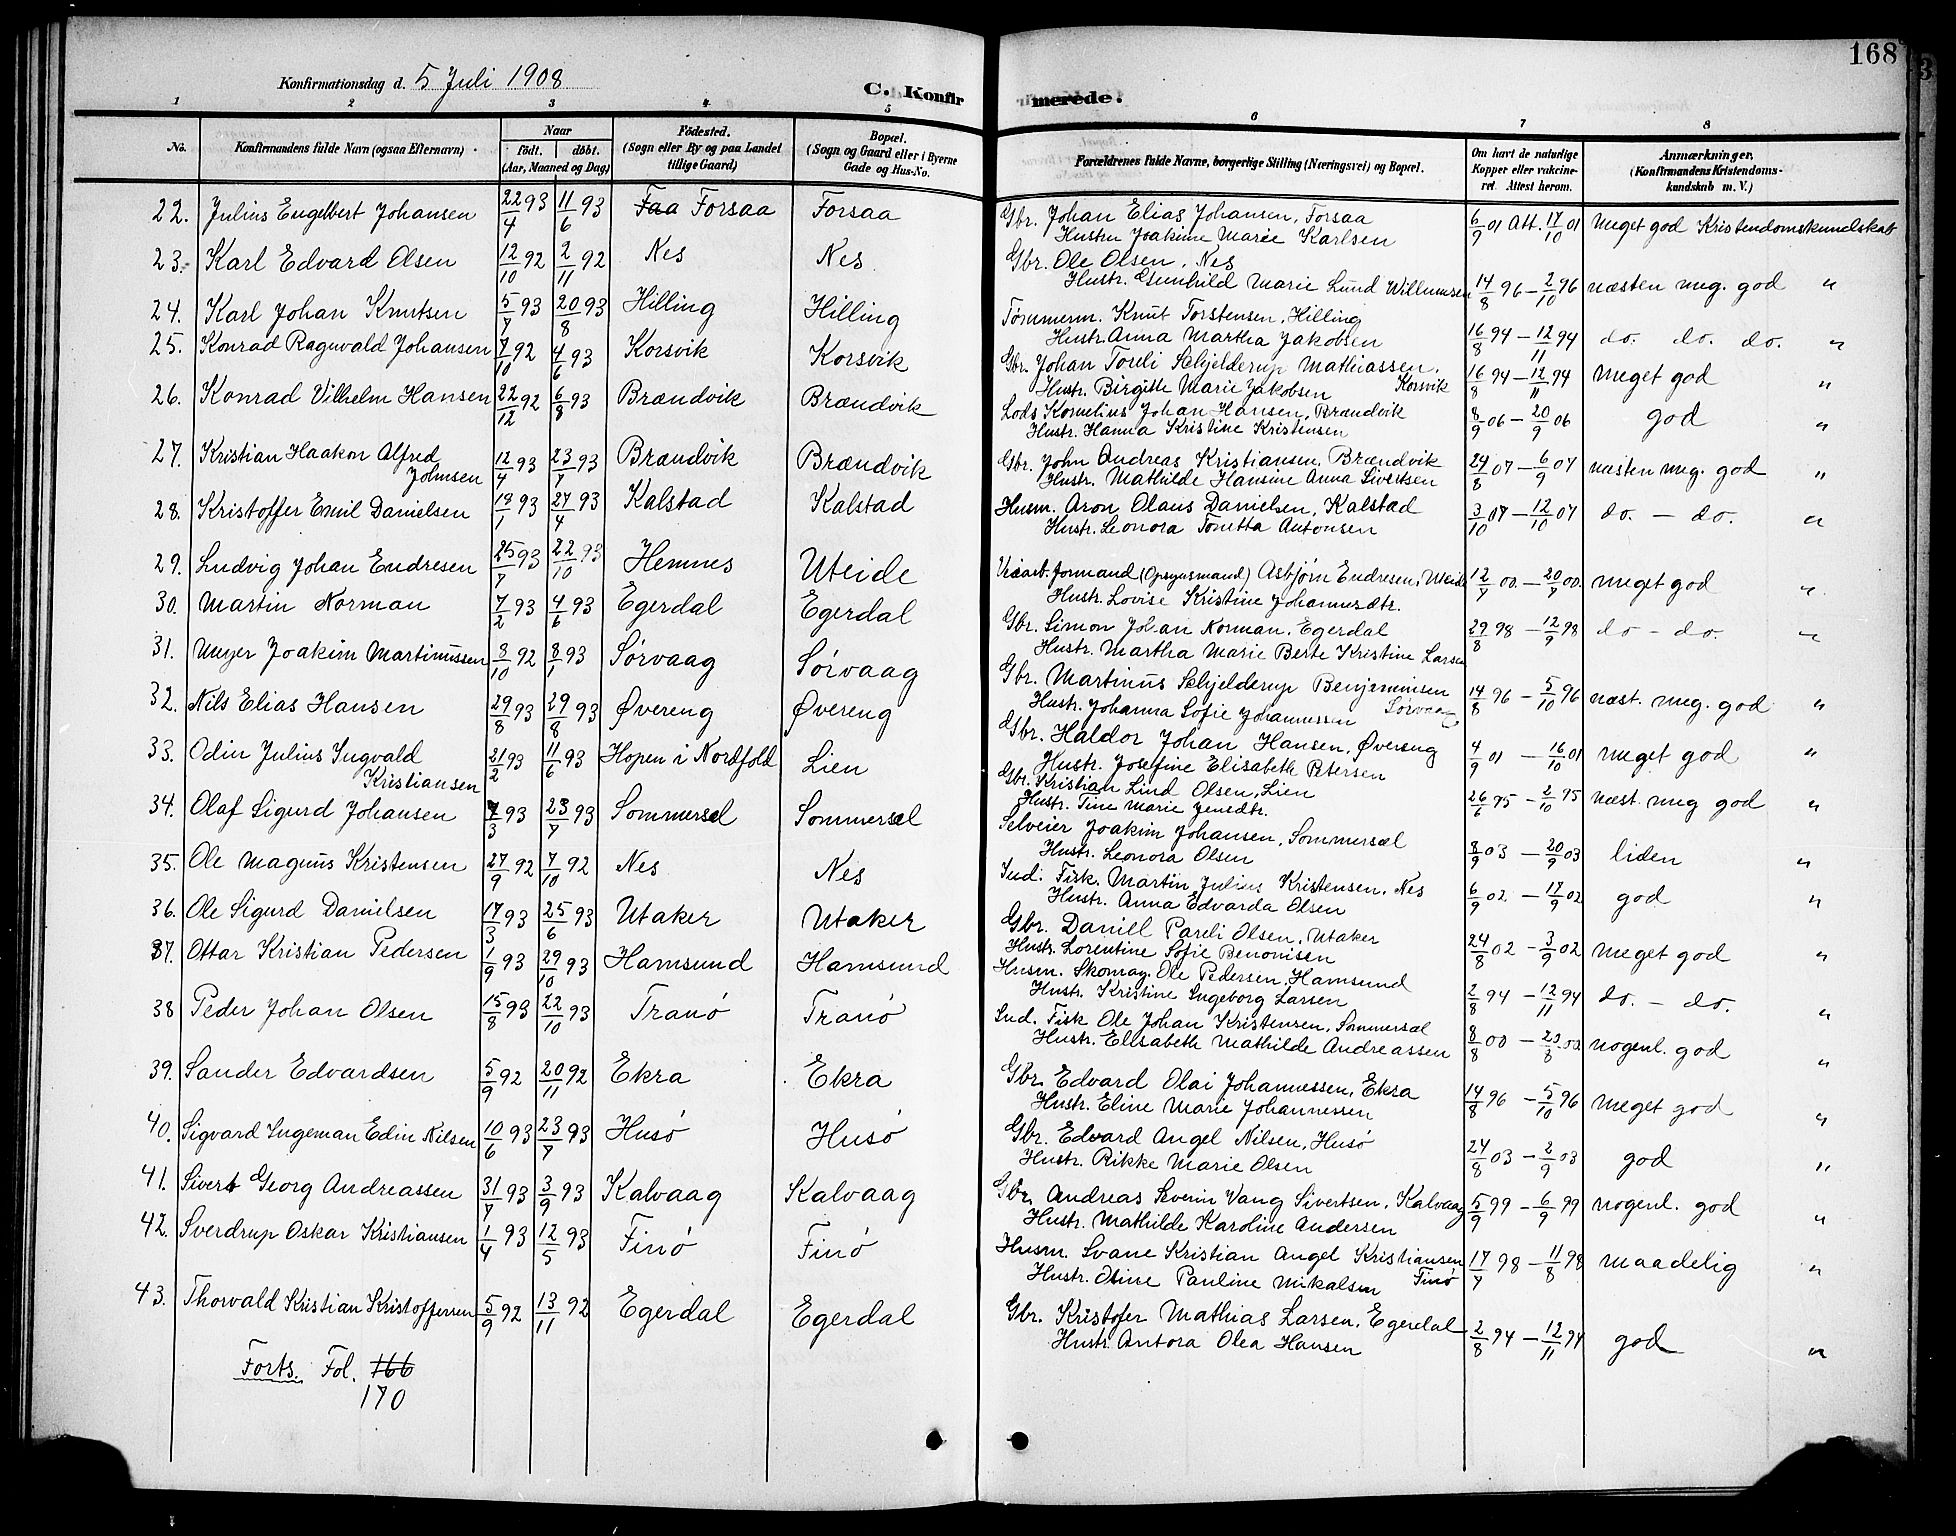 168
Konfirmationsdag d. 5 Juli 1908
C. Konfirmerede.
1 2 3 4 5 6 7 8
No. Konfirmandens fulde Navn (ogsaa Efternavn) Naar født. døbt. (Aar, Maaned og Dag) Fødested. (Sogn eller By og paa Landet tillige Gaard) Bopæl. (Sogn og Gaard eller i Byerne Gade og Hus-No. Forældrenes fulde Navne, borgerlige Stilling (Næringsvei) og Bopæl. Om havt de naturlige Kopper eller vakcineret. Attest herom. Anmærkninger. (Konfirmandens Kristendomskundskab m. V.)
22. Julius Engelbert Johansen 22/4 93 11/6 93 Faa Forsaa Forsaa Gbr. Johan Elias Johansen, Forsaa
Hustru Joakime Marie Karlsen 6/9 01 Att. 17/10 01 Meget god Kristendomskundskab
23. Karl Edvard Olsen 12/10 92 2/11 92 Nes Nes Gbr. Ole Olsen, Nes
Hustr. Gunhild Marie Lund Willumsen 14/8 96 – 2/10 96 næsten meg. god "
24. Karl Johan Knutsen 5/7 93 20/8 93 Hilling Hilling Tømmerm. Knut Torstensen, Hilling
Hustr. Anna Martha Jakobsen 16/8 94 – 12/11 94 do. do. do. "
25. Konrad Ragnvald Johansen 7/10 92 4/6 93 Korsvik Korsvik Gbr. Johan Toreli Schjelderup Mathiassen,
Hustr. Birgitte Marie Jakobsen Korsvik 16/8 94 – 12/11 94 Meget god "
26. Konrad Vilhelm Hansen 22/12 92 6/8 93 Brændvik Brændvik Lods Kornelius Johan Hansen, Brændvik
Hustr. Hanna Kristine Kristensen 8/9 06 – 20/9 06 god "
27. Kristian Haakon Alfred
Johnsen 12/4 93 23/7 93 Brændvik Brændvik Gbr. John Andreas Kristiansen, Brændvik
Hustr. Mathilde Hansine Anna Sivertsen 24/8 07 – 6/9 07 næsten meg. god "
28. Kristoffer Emil Danielsen 19/1 93 27/4 93 Kalstad Kalstad Husm. Aron Olaus Danielsen, Kalstad
Hustr. Leonora Tonetta Antonsen 3/10 07 – 12/10 07 do. – do. "
29. Ludvig Johan Endresen 25/7 93 22/10 93 Hemnes Uteide Veiarb. formand (Opsynsmand) Asbjørn Endresen, Uteide
Hustr. Lovise Kristine Johannesdtr. 12/7 00 – 20/7 00 meget god "
30. Martin Norman 7/2 93 4/6 93 Egerdal Egerdal Gbr. Simon Johan Norman, Egerdal
Hustr. Martha Marie Berte Kristine Larsen 29/8 98 – 12/9 98 do – do. "
31. Meyer Joakim Martinussen 8/10 92 8/1 93 Sørvaag Sørvaag Gbr. Martinus Schjelderup Benjaminsen
Hustr. Johanna Sofie Johannessen Sørvaag 14/8 96 – 5/10 96 næst. meg. god "
32. Nils Elias Hansen 29/8 93 29/8 93 Øvereng Øvereng Gbr. Haldor Johan Hansen, Øvereng
Hustr. Josefine Elisabeth Petersen 4/9 01 – 16/10 01 meget god "
33. Odin Julius Ingvald
Kristiansen 21/2 93 11/6 93 Hopen i Nordfold Lien Gbr. Kristian Lind Olsen, Lien
Hustr. Tine Marie Jensdtr. 26/6 95 – 2/10 95 næst. meg god "
34. Olaf Sigurd Johansen 7/3 93 23/7 93 Sommersel Sommersel Selveier Joakim Johansen, Sommersel
Hustr. Leonora Olsen 8/9 03 – 20/9 03 liden "
35. Ole Magnus Kristensen 27/9 92 7/10 92 Nes Nes Ind. Fisk. Martin Julius Kristensen, Nes
Hustr. Anna Edvarda Olsen 6/9 02 – 17/9 02 god "
36. Ole Sigurd Danielsen 17/3 93 25/6 93 Utaker Utaker Gbr. Daniel Pareli Olsen, Utaker
Hustr. Lorentine Sofie Benonisen 24/8 02 – 3/9 02 meget god "
37. Ottar Kristian Pedersen 1/9 93 29/10 93 Hamsund Hamsund Husm. Skomag. Ole Pedersen, Hamsund
Hustr. Kristine Ingeborg Larsen 2/8 94 – 12/11 94 do. – do. "
38 Peder Johan Olsen 15/8 93 22/10 93 Tranø Tranø Ind. Fisk Ole Johan Kristensen, Sommersel
Hustr. Elisabeth Mathilde Andreassen 8/8 00 – 20/8 00 nogenl. god "
39. Sander Edvardsen 5/9 92 20/11 92 Ekra Ekra Gbr. Edvard Olai Johannessen, Ekra
Hustr. Eline Marie Johannessen 14/8 96 – 5/10 96 meget god "
40. Sigvard Ingeman Edin Nilsen 10/6 93 23/7 93 Husø Husø Gbr. Edvard Angel Nilsen, Husø
Hustr. Rikke Marie Olsen 24/8 03 – 2/9 03 god "
41. Sivert Georg Andreassen 31/7 93 3/9 93 Kalvaag Kalvaag Gbr. Andreas Severin Vang Sivertsen, Kalvaag
Hustr. Mathilde Karoline Andersen 5/9 99 – 6/9 99 nogenl. god "
42. Sverdrup Oskar Kristiansen 1/4 93 12/5 93 Finø Finø Husm. Svane Kristian Angel Kristiansen
Hustr. Oline Pauline Mikalsen Finø 17/7 98 – 11/8 98 maadelig "
43. Thorvald Kristian Kristoffersen 5/9 92 13/11 92 Egerdal Egerdal Gbr. Kristofer Mathias Larsen, Egerdal
Hustr. Antora Olea Hansen 2/8 94 – 12/11 94 god "
Forts. Fol. 166
170